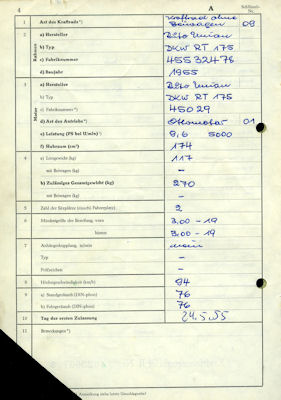 4 A Schlüssel-Nr.
1 Art des Kraftrads*) Kraftrad ohne Beiwagen 09
2 Rahmen a) Hersteller Auto Union
b) Typ DKW RT 175
c) Fabriknummer 45532476
d) Baujahr 1955
3 Motor a) Hersteller Auto Union
b) Typ DKW RT 175
c) Fabriknummer*) 45029
d) Art des Antriebs*) Ottomotor 01
e) Leistung (PS bei U/min) 9,6 5000
f) Hubraum (cm³) 174
4 a) Leergewicht (kg) 117
mit Beiwagen (kg) –
b) Zulässiges Gesamtgewicht (kg) 270
mit Beiwagen (kg) –
5 Zahl der Sitzplätze 2
6 Mindestgröße der Bereifung, vorn 3.00 – 19
hinten 3.00 – 19
7 Anhängerkupplung, ja/nein nein
Typ –
Prüfzeichen –
8 Höchstgeschwindigkeit (km/h) 94
9 a) Standgeräusch (DIN-phon) 76
b) Fahrgeräusch (DIN-phon) 76
10 Tag der ersten Zulassung 24.5.55
11 Bemerkungen*)